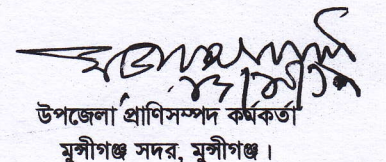 উপজেলা প্রাণিসম্পদ কর্মকর্তা
মুন্সীগঞ্জ সদর, মুন্সীগঞ্জ।